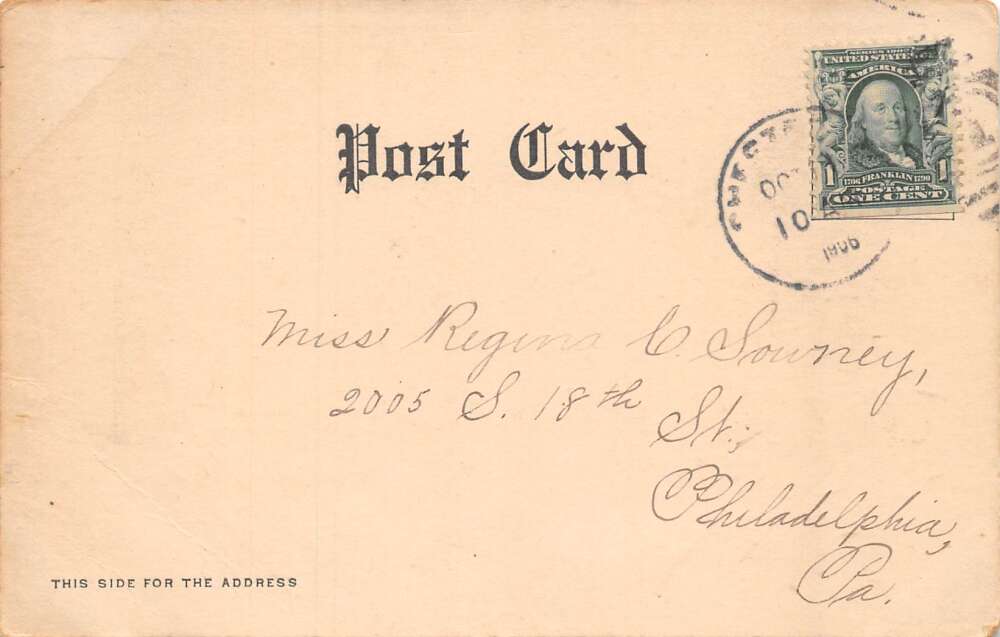 SERIES 1902
UNITED STATES OF
AMERICA
Post Card
CHESTER
OCT
10
1906
1 1706 FRANKLIN 1790 1
POSTAGE
ONE CENT
Miss Regina C. Sowney,
2005 S. 18th
St.,
Philadelphia,
Pa.
THIS SIDE FOR THE ADDRESS